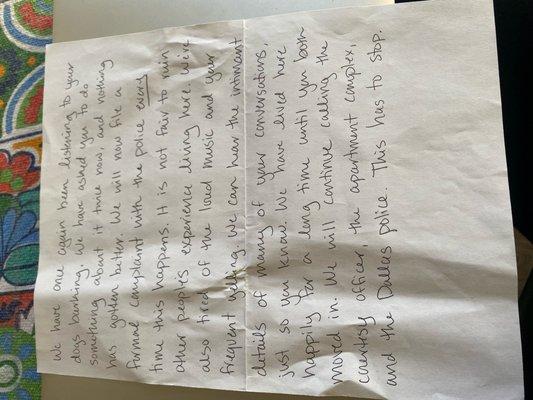 We have once again been listening to your
dogs barking. We have asked you to do
something about it twice now, and nothing
has gotten better. We will now file a
formal complaint with the police every
time this happens. It is not fair to ruin
other peoples experience living here. We're
also tired of the loud music and your
frequent yelling. We can hear the intimant
details of many of your conversations,
just so you know. We have lived here
happily for a long time until you both
moved in. We will continue calling the
courtisy officer, the apartment complex,
and the Dallas police. This has to stop.